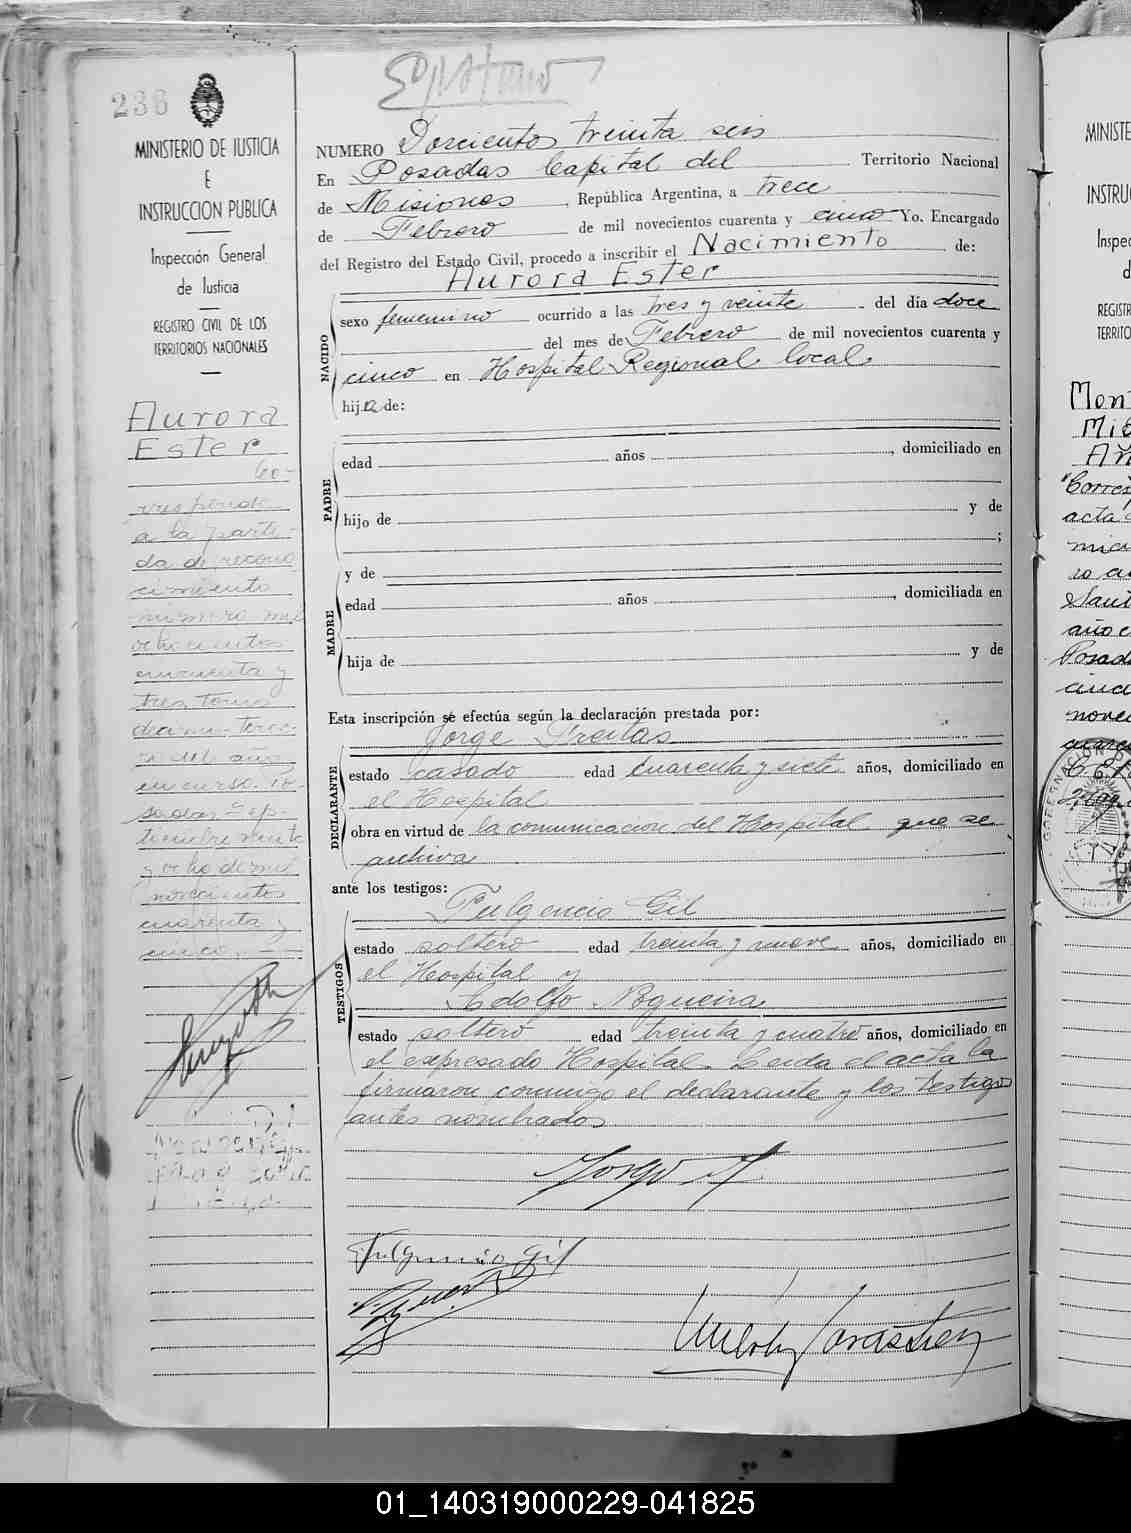 236
MINISTERIO DE JUSTICIA
E
INSTRUCCION PUBLICA
Inspección General
de Justicia
REGISTRO CIVIL DE LOS
TERRITORIOS NACIONALES
Aurora
Ester
Co-
rresponde
a la parti-
da de recono
cimiento
número mil
ochocientos
cincuenta y
tres tomo
décimo terce-
ro del año
en curso. Po-
sadas Sep-
tiembre veinte
y ocho de mil
novecientos
cuarenta y
cinco.
NUMERO Doscientos treinta seis
En Posadas Capital del Territorio Nacional
de Misiones, República Argentina, a trece
de Febrero de mil novecientos cuarenta y cinco Yo. Encargado
del Registro del Estado Civil, procedo a inscribir el Nacimiento de:
Aurora Ester
NACIDO
sexo femenino ocurrido a las tres y veinte del día doce
del mes de Febrero de mil novecientos cuarenta y
cinco en Hospital Regional local
hija de:
PADRE
edad años , domiciliado en
hijo de y de
;
y de
MADRE
edad años , domiciliada en
hija de y de
Esta inscripción se efectúa según la declaración prestada por:
Jorge Freitas
DECLARANTE
estado casado edad cuarenta y siete años, domiciliado en
el Hospital
obra en virtud de la comunicacion del Hospital que se
archiva
ante los testigos:
Fulgencio Gil
TESTIGOS
estado soltero edad treinta y nueve años, domiciliado en
el Hospital y
Adolfo Nogueira
estado soltero edad treinta y cuatro años, domiciliado en
el expresado Hospital. Leida el acta la
firmaron conmigo el declarante y los testigos
antes nombrados
Fulgencio Gil
MINISTE
INSTRU
Inspec
d
REGISTR
TERRITO
Corresp
acta
Posad
noved
01_140319000229-041825